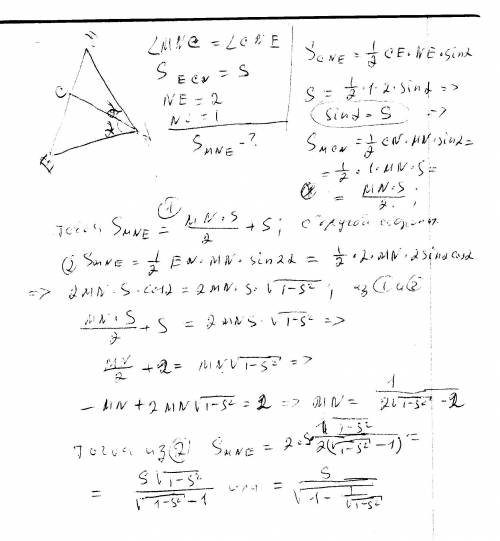 ∠MNC = ∠CNE
S ECN = S
NE = 2
S MNE - ?
C
E
S CNE = 1/2 CE · NE · sinα
S = 1/2 · 1 · 2 · sinα =>
sinα = S =>
S MCN = 1/2 CN · MN · sinα =
= 1/2 · 1 · MN · S =
= MN · S / 2 ;
тогда S MNE = ① MN · S / 2 + S ; с другой
② S MNE = 1/2 EN · MN · sin2α = 1/2 · 2 · MN · 2sinα cosα
=> 2MN · S · cosα = 2MN · S · √(1-S²) ; из ① и ②
MN · S / 2 + S = 2MNS · √(1-S²) =>
MN / 2 + 2 = MN√(1-S²) =>
- MN + 2MN√(1-S²) = 2 => MN = 1 / (2√(1-S²) - 2)
Тогда из ② S MNE = 2 · S √(1-S²) / 2(√(1-S²) - 1) =
= S√(1-S²) / (√(1-S²) - 1) или = S